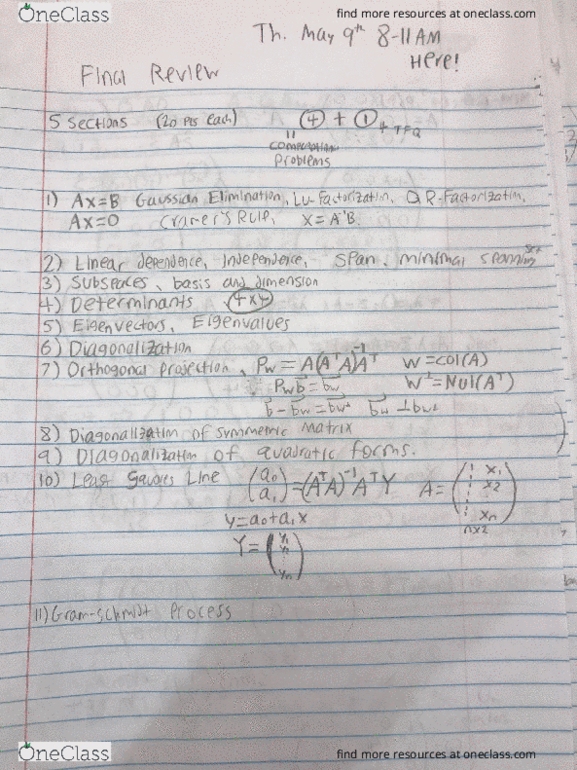 OneClass
find more resources at oneclass.com
Th. May 9th 8-11AM
Here!
Final Review
5 Sections (20 Pts Each) 4 + 1 + TFQ
"
computation
Problems
1) Ax=B Gaussian Elimination, LU-Factorization, QR-Factorization,
Ax=0 Cramer's Rule, X=A⁻¹B
2) Linear dependence, Independence, Span, minimal spanning set
3) Subspaces, basis and dimension
4) Determinants (4x4)
5) Eigenvectors, Eigenvalues
6) Diagonalization
7) Orthogonal Projection, Pw = A(AᵀA)⁻¹Aᵀ W=col(A)
Pwb = bw W⊥=Nul(Aᵀ)
b - bw = bw⊥ bw ⊥ bw⊥
8) Diagonalization of Symmetric Matrix
9) Diagonalization of quadratic forms.
10) Least Squares Line (a0 a1) = (AᵀA)⁻¹AᵀY A = (1 x1
1 x2
1 xn)
y=a0+a1x nx2
Y = (y1
y2
yn)
11) Gram-Schmidt Process
OneClass
find more resources at oneclass.com